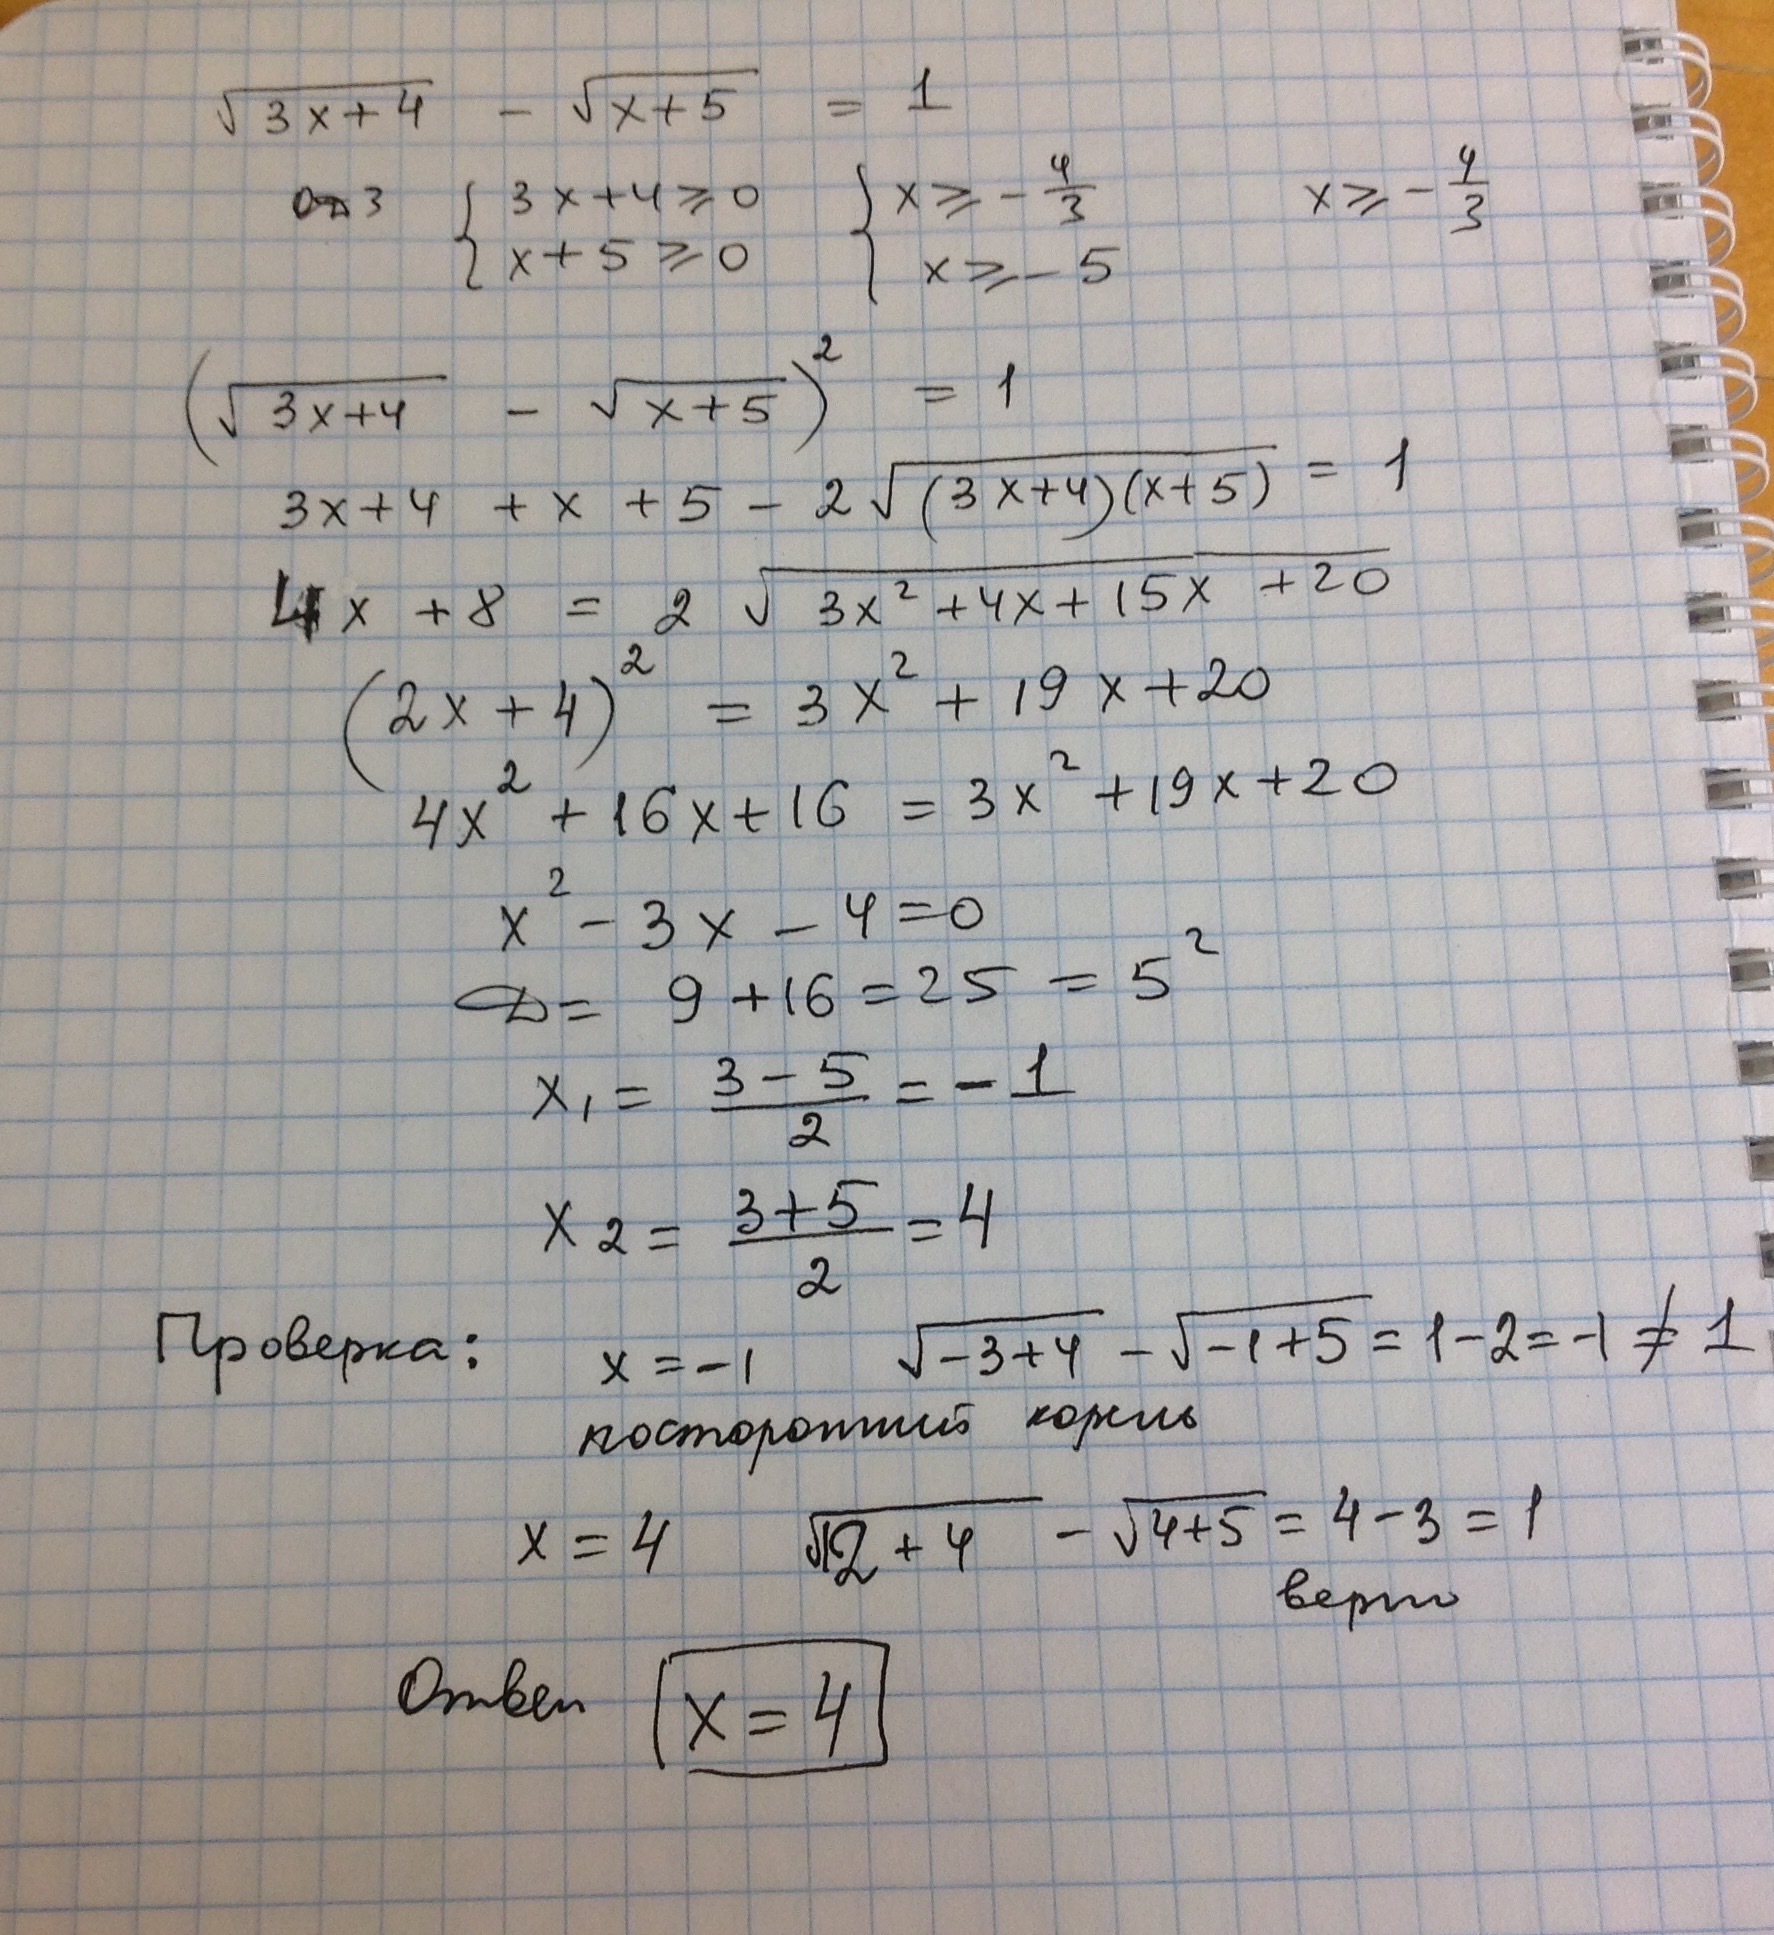 √(3x+4) - √(x+5) = 1
ОДЗ { 3x+4⩾0 { x⩾-4/3 x⩾-4/3
x+5⩾0 x⩾-5
(√(3x+4) - √(x+5))² = 1
3x+4 + x + 5 - 2√((3x+4)(x+5)) = 1
4x + 8 = 2 √(3x²+4x+15x+20)
(2x+4)² = 3x² + 19x+20
4x² + 16x+16 = 3x² +19x+20
x² - 3x - 4=0
D= 9+16=25 = 5²
x₁ = (3-5)/2 = -1
x₂ = (3+5)/2 = 4
Проверка: x=-1 √(-3+4) - √(-1+5) = 1-2=-1 ≠ 1
посторонний корень
x=4 √(12+4) - √(4+5) = 4-3=1
верно
Ответ x=4